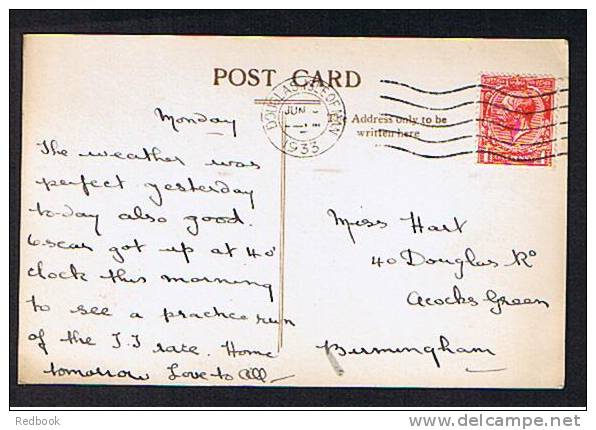 POST CARD
DOUGLAS ISLE OF MAN
JUN
1933
Address only to be
written here
Monday
The weather was
perfect yesterday
to-day also good.
Oscar got up at 4 o'
clock this morning
to see a practice run
of the T.T race. Home
tomorrow Love to All
Miss Hart
40 Douglas Rd
Acocks Green
Birmingham
Redbook
www.delcampe.net